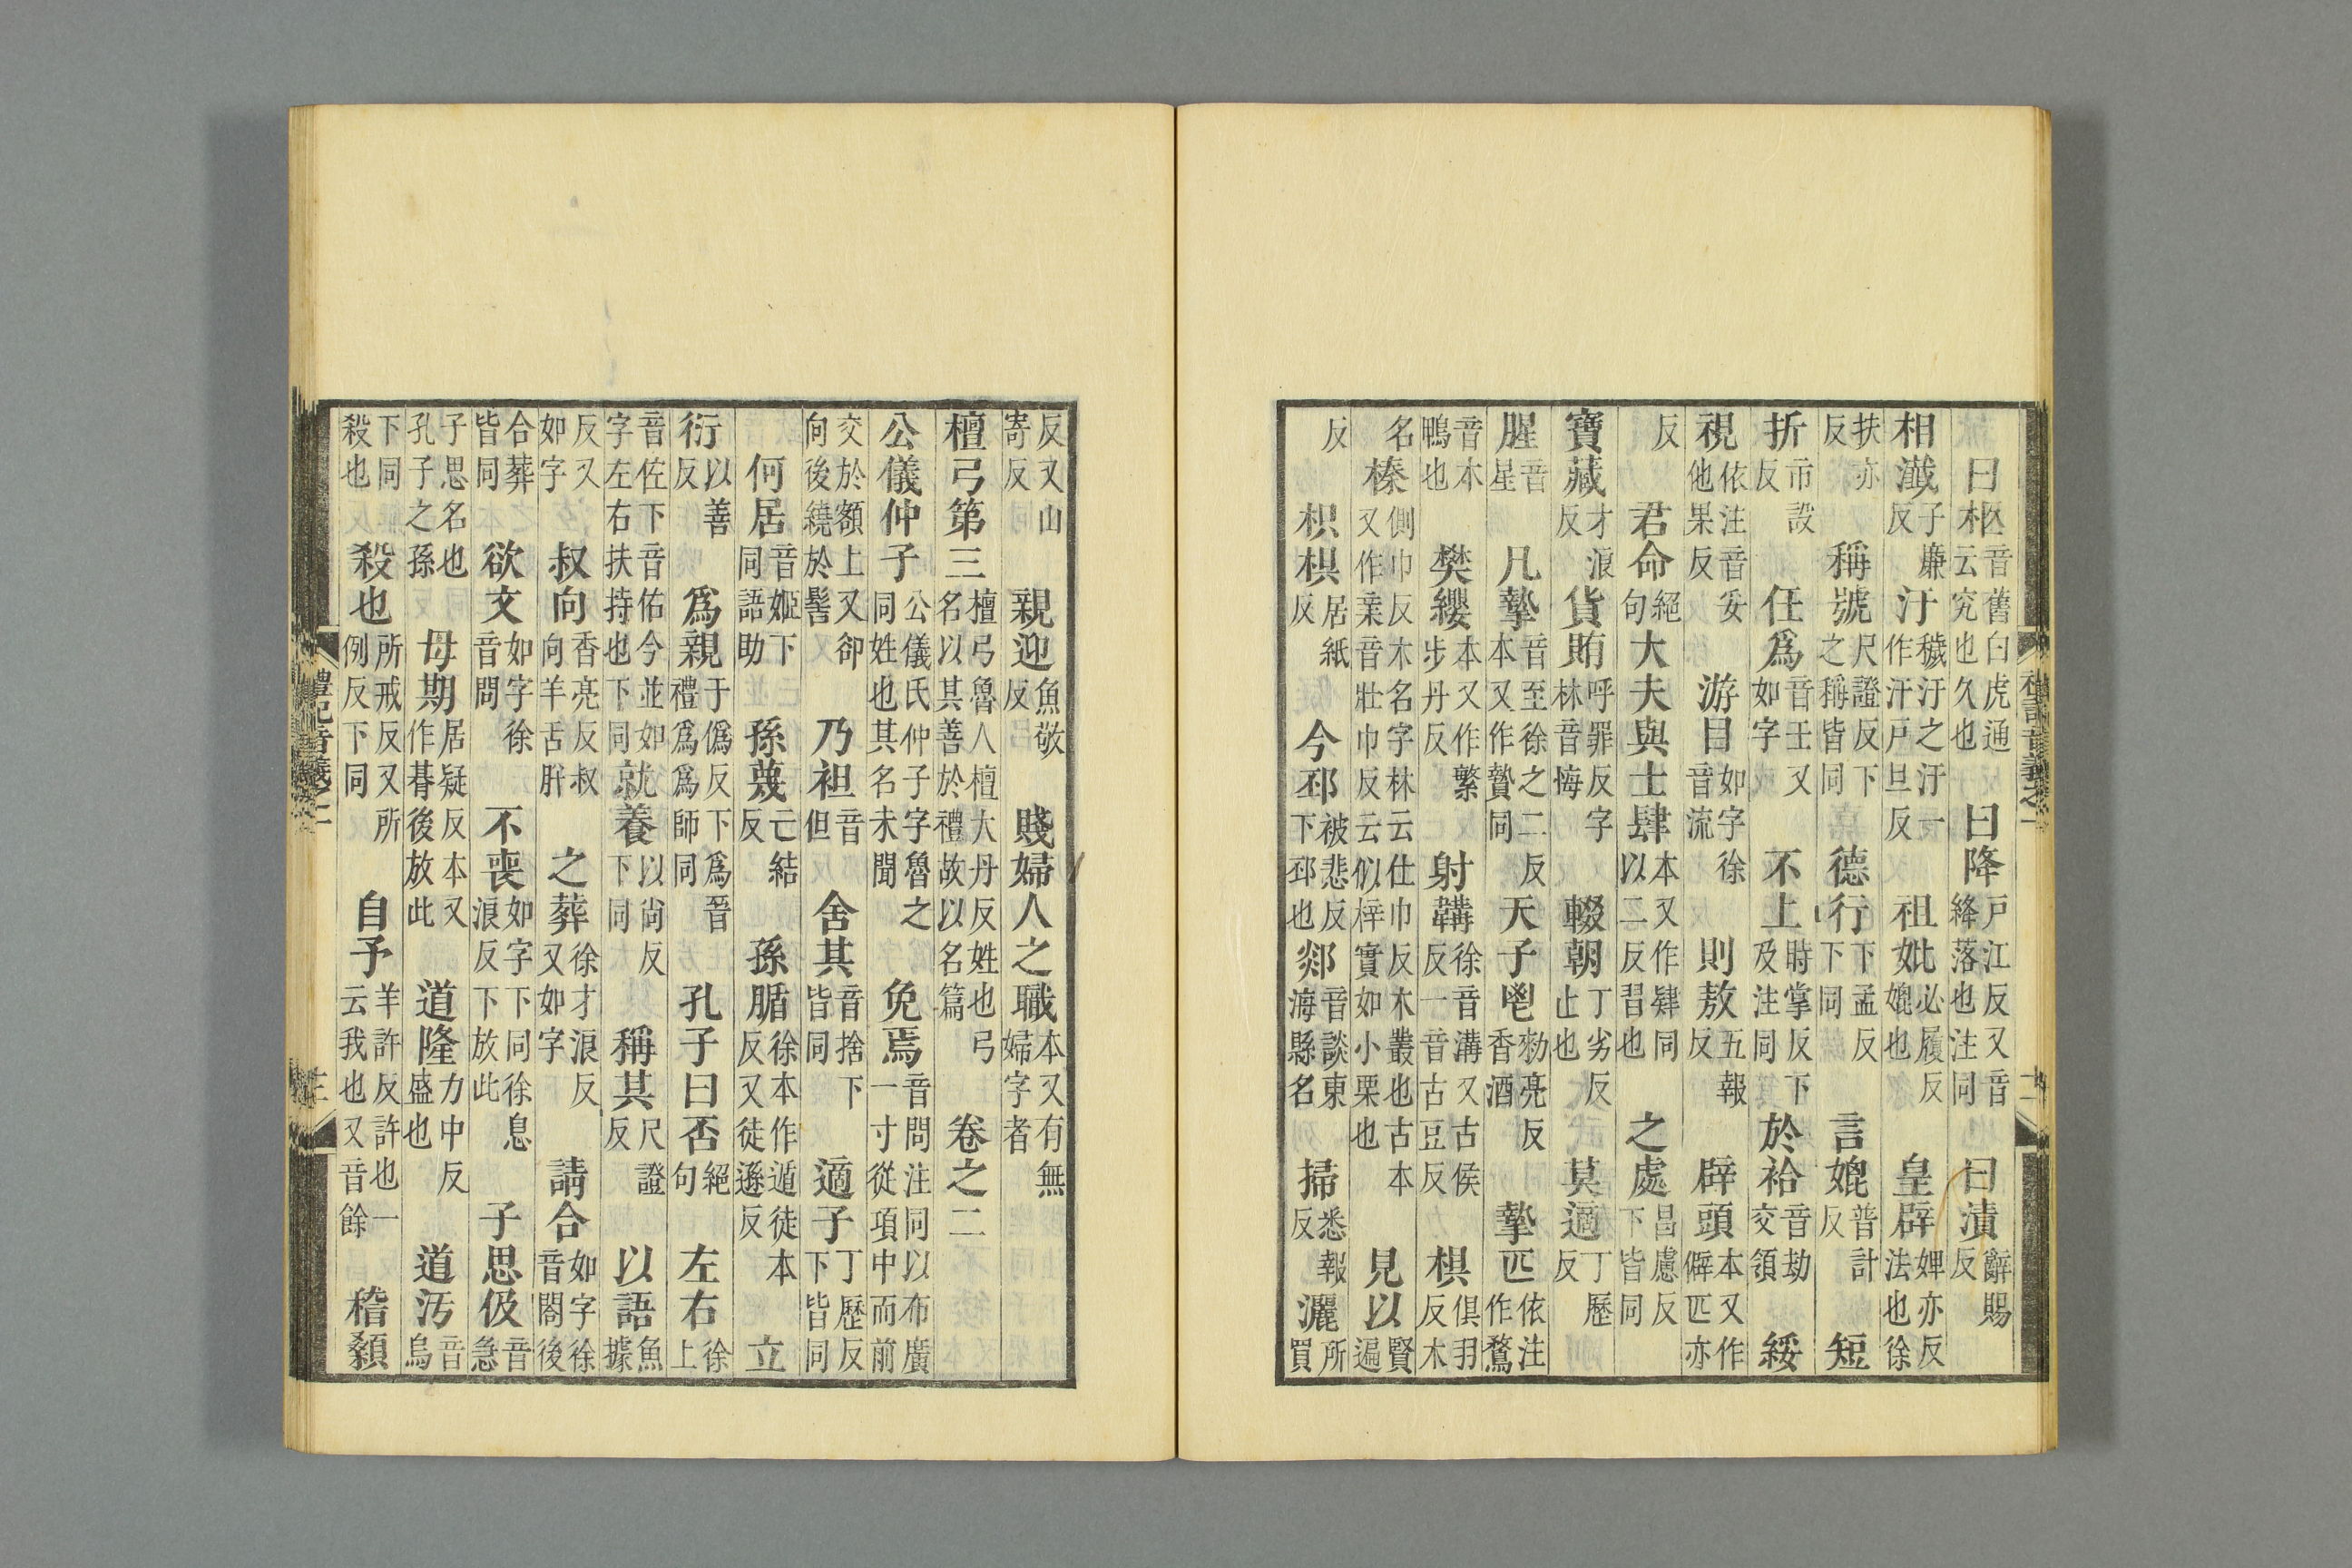 曰柩音舊白虎通云究也久也 曰降戶江反又音絳落也注同 曰漬辭賜反
相瀸子廉反 汙穢汙之汙一作汗戶旦反 祖妣必履反媲也 皇辟婢亦反法也徐
扶亦反 稱號尺證反下之稱皆同 德行下孟反下同 言媲普計反 短
折市設反 任爲音壬又如字 不上時掌反下及注同 於袷音劫交領 綏
視依注音妥他果反 游目如字徐音流 則敖五報反 辟頭本又作僻匹亦
反 君命絕句 大夫與士肆本又作肄同以二反習也 之處昌慮反下皆同
寶藏才浪反 貨賄呼罪反字林音悔 輟朝丁劣反止也 莫適丁歷反
腥音星 凡摯音至徐之二反本又作贄同 天子鬯勑亮反香酒 摯匹依注作鶩
音木鴨也 樊纓本又作繁步丹反 射韝徐音溝又古侯反一音古豆反 椇俱羽反木
名 榛側巾反木名字林云仕巾反木叢也古本又作亲音壯巾反云似梓實如小栗也 見以賢遍
反 枳椇居紙反 今邳被悲反下邳也 郯音談東海縣名 掃悉報反 灑所買
禮記音義之一 二
反又山寄反 親迎魚敬反 賤婦人之職本又有無婦字者
檀弓第三檀弓魯人檀大丹反姓也弓名以其善於禮故以名篇 卷之二
公儀仲子公儀氏仲子字魯之同姓也其名未聞 免焉音問注同以布廣一寸從項中而前
交於額上又卻向後繞於髻 乃袒音但 舍其音捨下皆同 適子丁歷反下皆同
何居音姬下同語助 孫蔑亡結反 孫腯徐本作遁徒本反又徒遜反 立
衍以善反 爲親于僞反下爲晉禮爲爲師同 孔子曰否絕句 左右徐上
音佐下音佑今並如字左右扶持也下同 就養以尚反下同 稱其尺證反 以語魚據
反又如字 叔向香亮反叔向羊舌肸 之葬徐才浪反又如字 請合如字徐音閤後
合葬皆同 欲文如字徐音問 不喪如字下同徐息浪反下放此 子思伋音急
子思名也孔子之孫 母期居疑反本又作朞後放此 道隆力中反盛也 道污音烏
下同殺也 殺也所戒反又所例反下同 自予羊許反許也一云我也又音餘 稽顙
禮記音義之 三